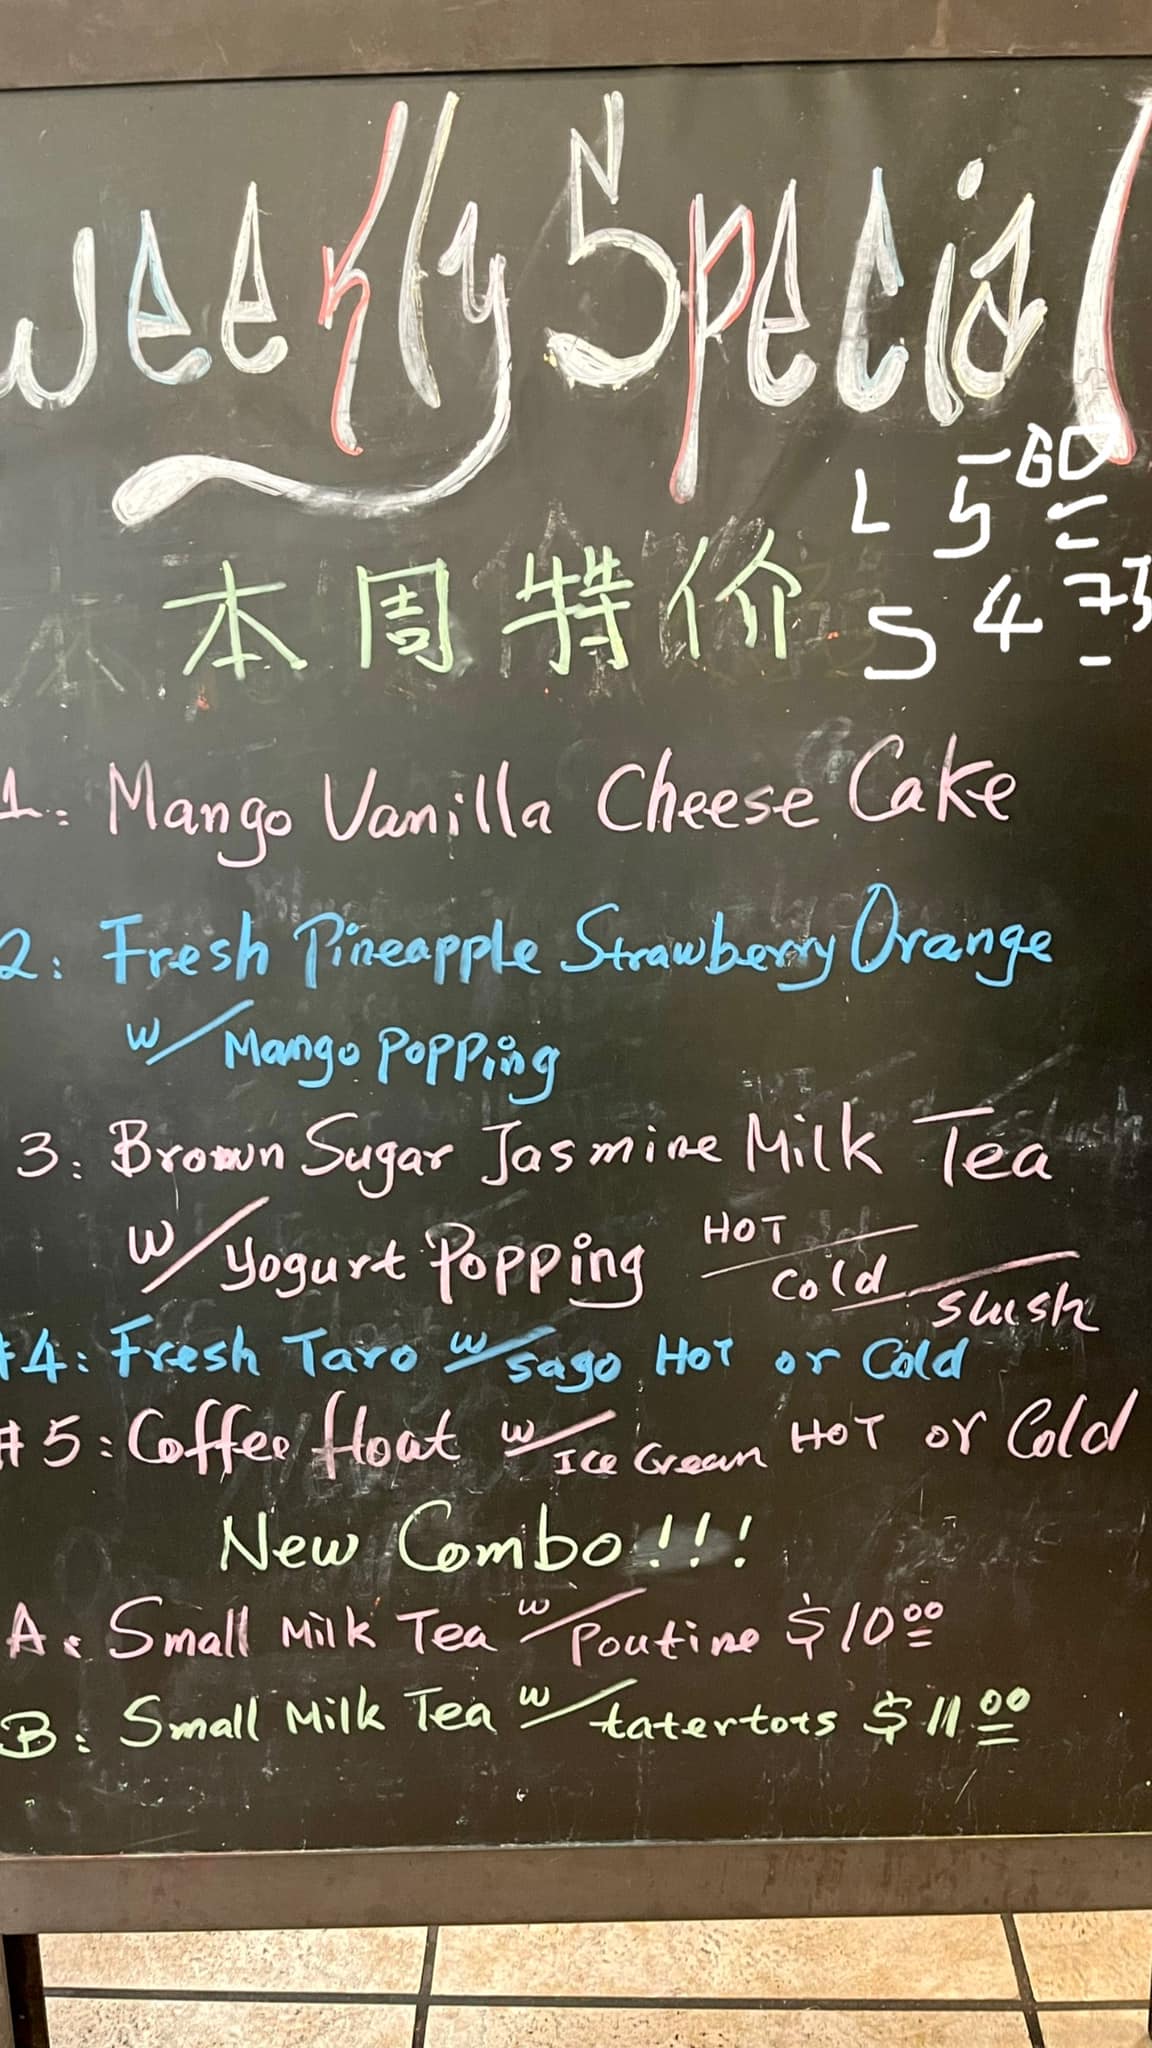 Weekly Special
L 5.60
本周特价
S 4.75
1: Mango Vanilla Cheese Cake
2: Fresh Pineapple Strawberry Orange
w/ Mango Popping
3: Brown Sugar Jasmine Milk Tea
w/ Yogurt Popping HOT / Cold / Slush
#4: Fresh Taro w/ Sago HOT or Cold
#5: Coffee float w/ Ice Cream HOT or Cold
New Combo!!!
A: Small Milk Tea w/ Poutine $10.00
B: Small Milk Tea w/ tatertots $11.00